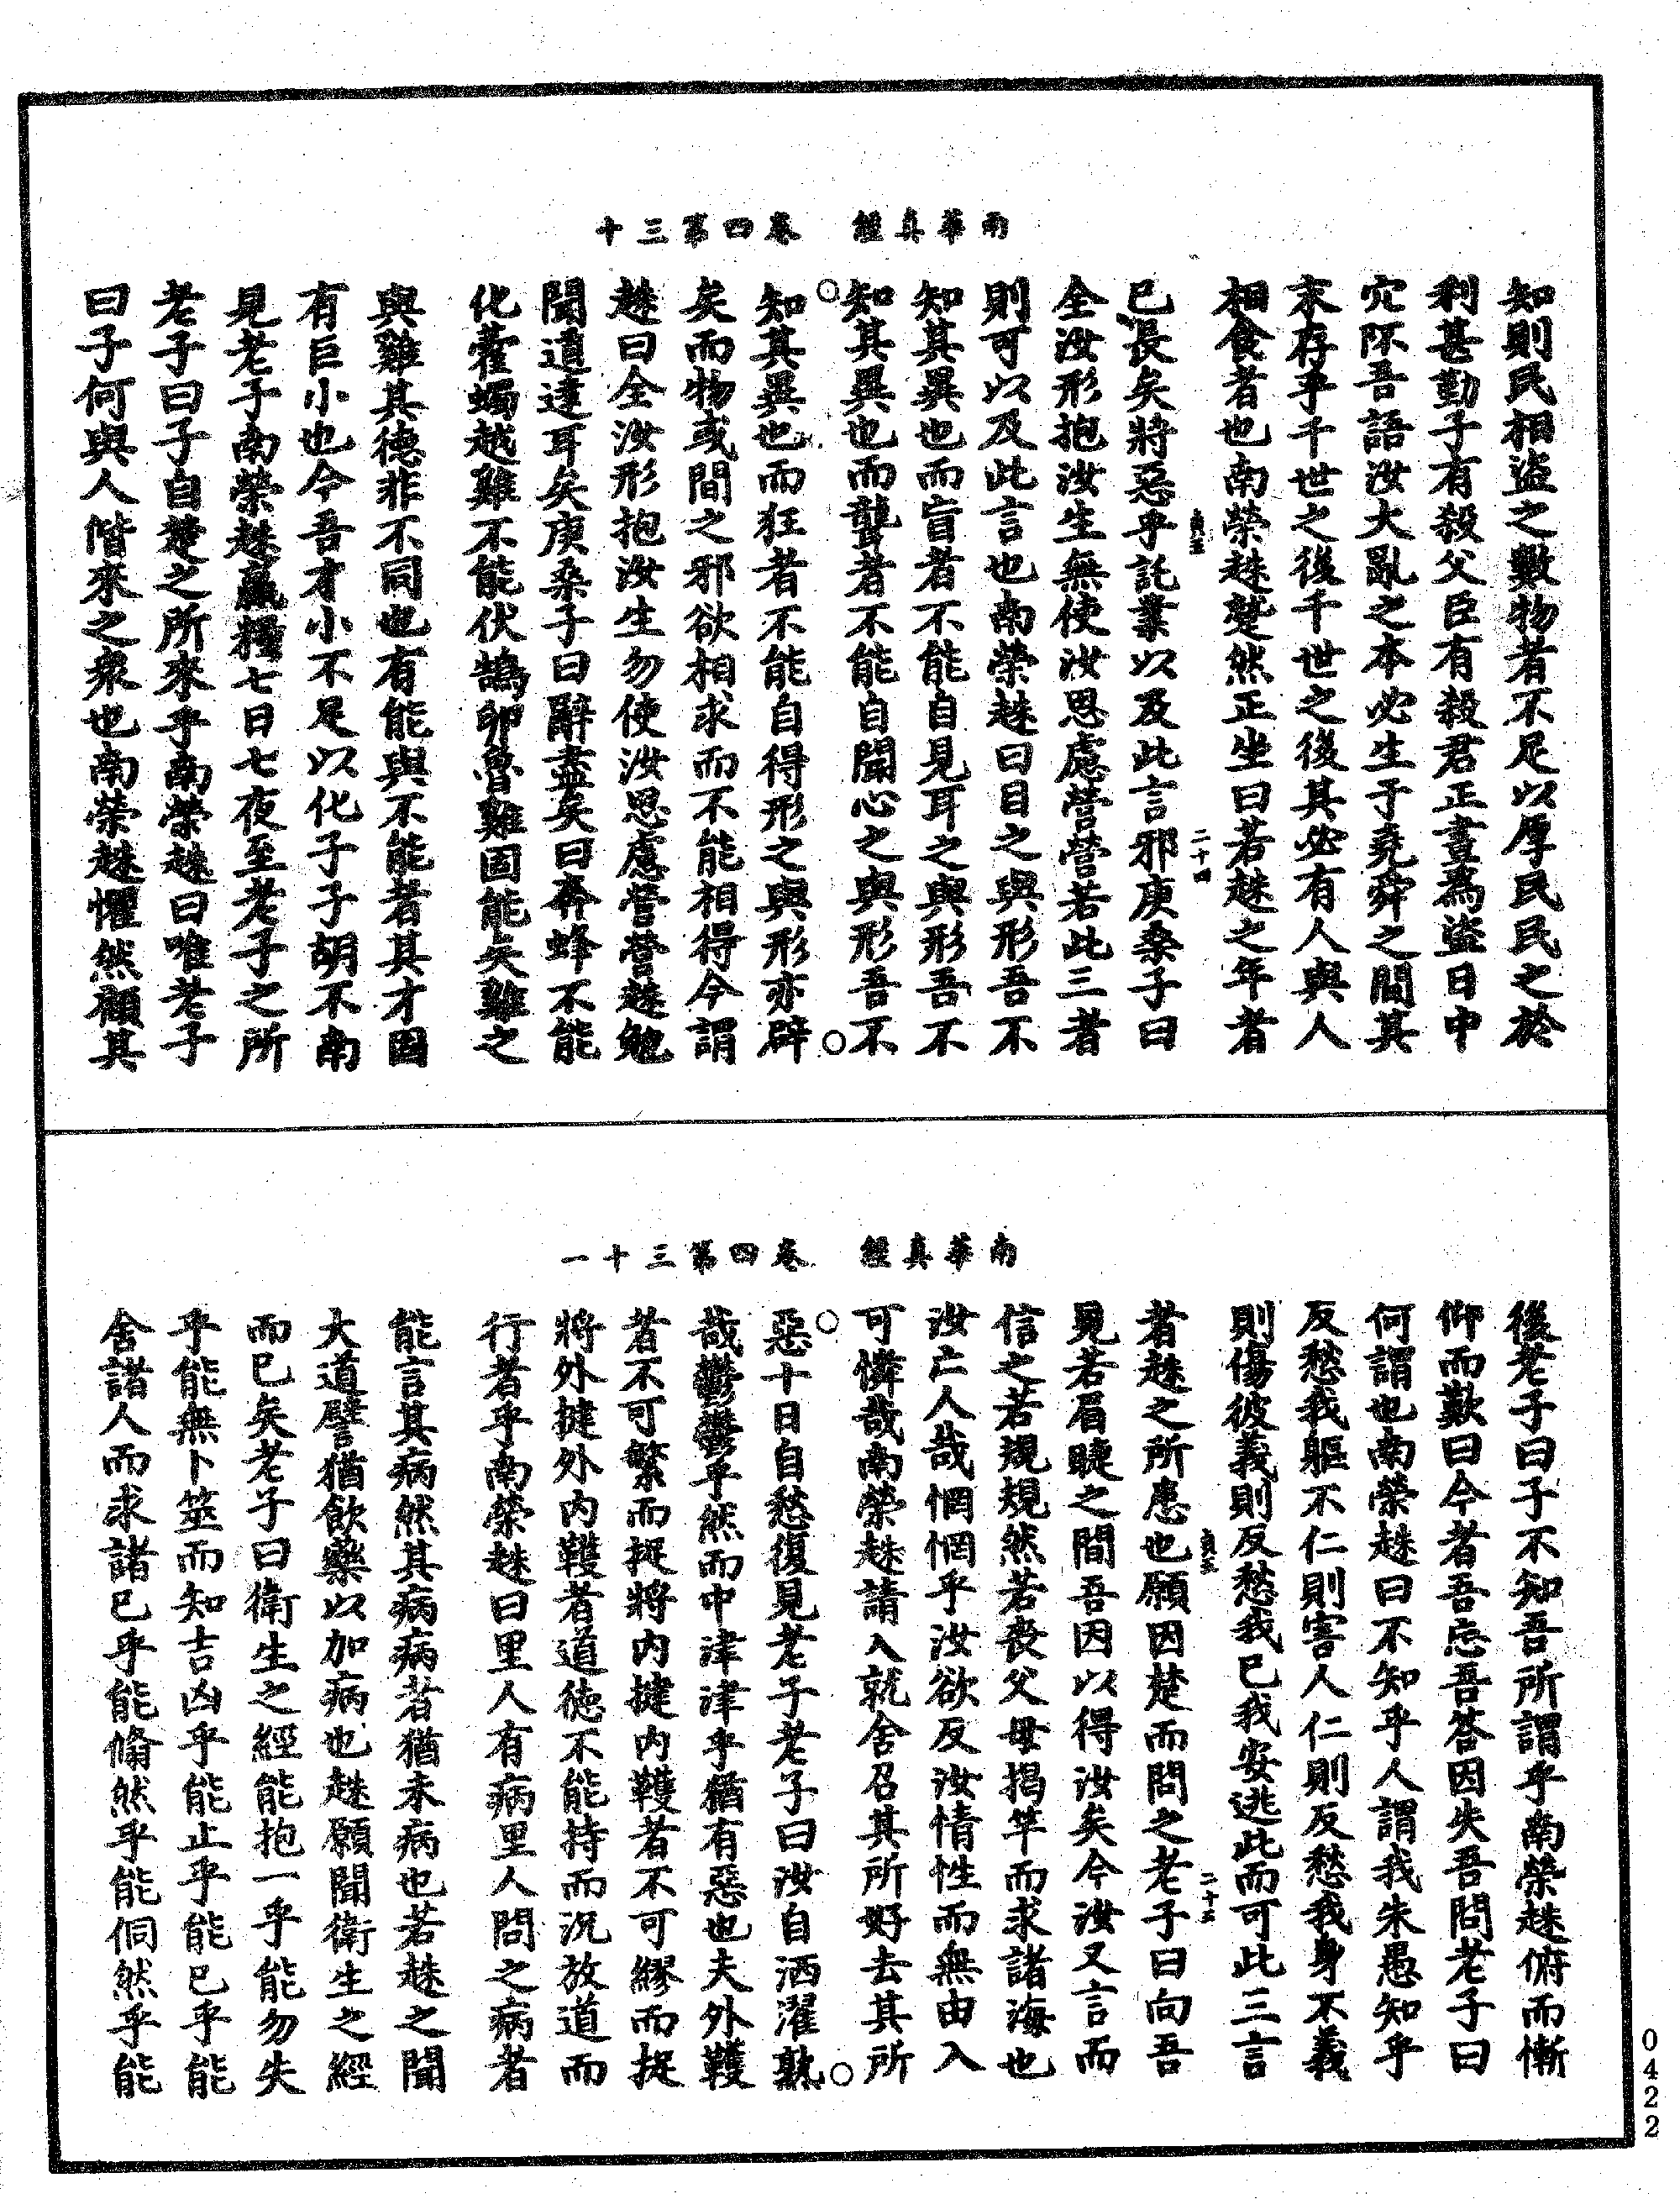 南華真經　卷四第三十
知則民相盜之數物者不足以厚民民之於
利甚勤子有殺父臣有殺君正晝為盜日中
穴阫吾語汝大亂之本必生于堯舜之間其
末存乎千世之後千世之後其必有人與人
相食者也南榮趎蹵然正坐曰若趎之年者
已長矣將惡乎託業以及此言邪庚桑子曰
二十四
全汝形抱汝生無使汝思慮營營若此三者
則可以及此言也南榮趎曰目之與形吾不
知其異也而盲者不能自見耳之與形吾不
知其異也而聾者不能自聞心之與形吾不
知其異也而狂者不能自得形之與形亦辟
矣而物或間之邪欲相求而不能相得今謂
趎曰全汝形抱汝生勿使汝思慮營營趎勉
聞道達耳矣庚桑子曰辭盡矣曰奔蜂不能
化藿蠋越雞不能伏鵠卵魯雞固能矣雞之
與雞其德非不同也有能與不能者其才固
有巨小也今吾才小不足以化子子胡不南
見老子南榮趎贏糧七日七夜至老子之所
老子曰子自楚之所來乎南榮趎曰唯老子
曰子何與人偕來之衆也南榮趎懼然顧其
南華真經　卷四第三十一
後老子曰子不知吾所謂乎南榮趎俯而慚
仰而歎曰今者吾忘吾答因失吾問老子曰
何謂也南榮趎曰不知乎人謂我朱愚知乎
反愁我軀不仁則害人仁則反愁我身不義
則傷彼義則反愁我已我安逃此而可此三言
者趎之所患也願因楚而問之老子曰向吾
二十五
見若眉睫之間吾因以得汝矣今汝又言而
信之若規規然若喪父母揭竿而求諸海也
汝亡人哉惘惘乎汝欲反汝情性而無由入
可憐哉南榮趎請入就舍召其所好去其所
惡十日自愁復見老子老子曰汝自洒濯孰
哉鬱鬱乎然而中津津乎猶有惡也夫外韄
者不可繁而捉將内揵内韄者不可繆而捉
將外揵外内韄者道德不能持而況放道而
行者乎南榮趎曰里人有病里人問之病者
能言其病然其病病者猶未病也若趎之聞
大道譬猶飲藥以加病也趎願聞衛生之經
而已矣老子曰衛生之經能抱一乎能勿失
乎能無卜筮而知吉凶乎能止乎能已乎能
舍諸人而求諸已乎能翛然乎能侗然乎能
0422